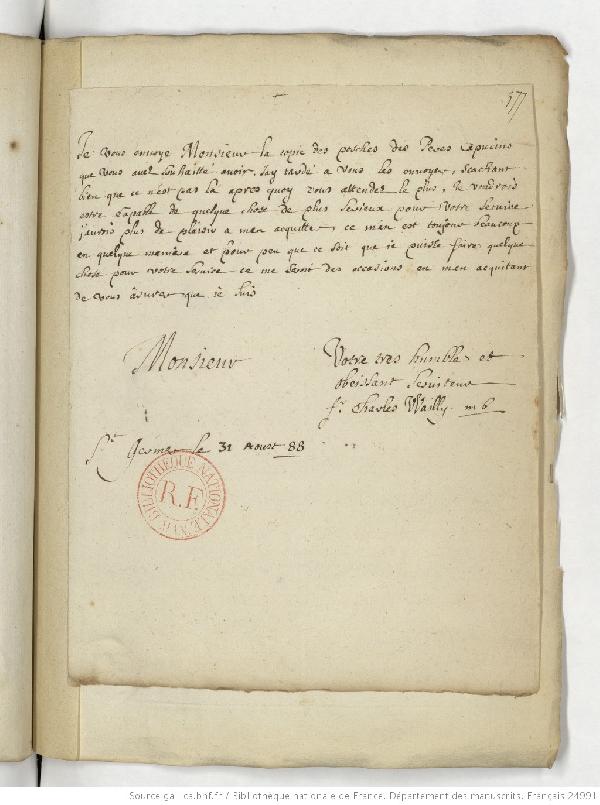 177
Je vous envoye Monsieur la copie des pesches des Peres Capucins
que vous avez souhaitté avoir, J'ay tardé a vous les envoyer, scachant
bien que ce n'est pas la apres quoy vous attendez le plus, Je voudrois
estre capable de quelque chose de plus serieux pour votre service
j'aurois plus de plaisir a m'en acquitter, ce m'en est toujours beaucoup
en quelque maniere et pour peu que ce soit que je puisse faire quelque
chose pour votre service ce me seront des occasions en m'en acquitant
de vous assurer que je suis
Monsieur
Votre tres humble et
obeissant serviteur
fr. Charles Wailly m b
St Germer le 31 Aoust 88
BIBLIOTHEQUE NATIONALE MSS
R.F.
Source gallica.bnf.fr / Bibliothèque nationale de France. Département des manuscrits. Français 24991